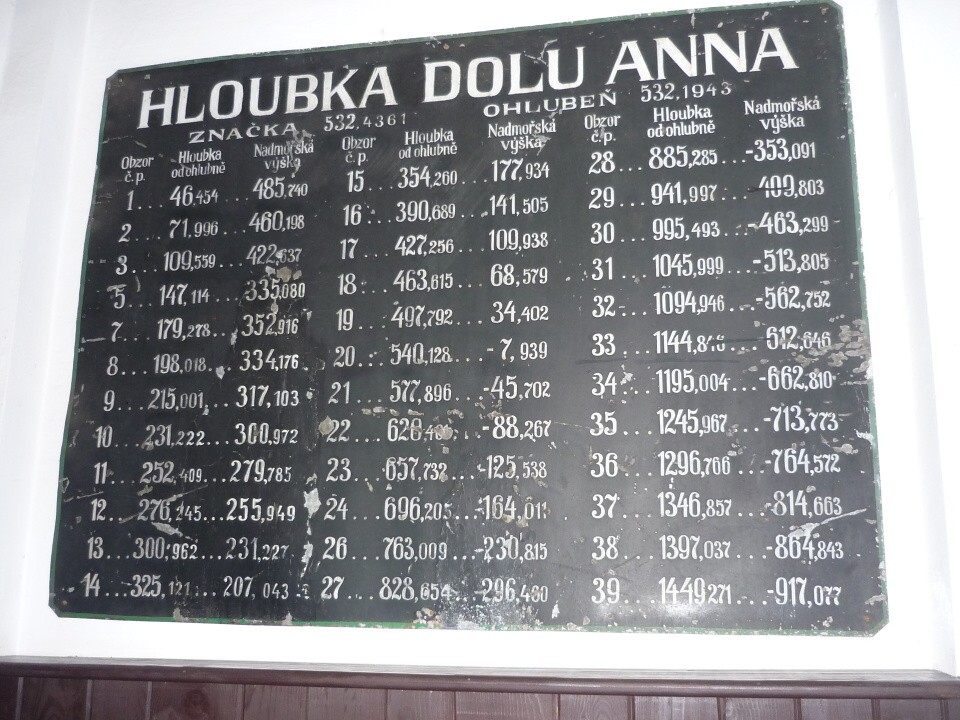 HLOUBKA DOLU ANNA
ZNAČKA 532,4361 OHLUBEŇ 532,1943
Obzor č.p. Hloubka od ohlubně Nadmořská výška
1... 46,454 ... 485,740
2 ... 71,996 ... 460,198
3 ... 109,559 ... 422,637
5 ... 147,114 ... 335,080
7 ... 179,278 ... 352,916
8 ... 198,018 ... 334,176
9 ... 215,001 ... 317,103
10 ... 231,222 ... 300,972
11 ... 252,409 ... 279,785
12 ... 276,245 ... 255,949
13 ... 300,962 ... 231,227
14 ... 325,121 ... 207,043
Obzor č.p. Hloubka od ohlubně Nadmořská výška
15 ... 354,260 ... 177,934
16 ... 390,689 ... 141,505
17 ... 427,256 ... 109,938
18 ... 463,615 ... 68,579
19 ... 497,792 ... 34,402
20 ... 540,128 ... -7,939
21 ... 577,896 ... -45,702
22 ... -88,267
23 ... 657,732 ... -125,538
24 ... 696,205 ... -164,011
26 ... 763,009 ... -230,815
27 ... 828,654 ... -296,460
Obzor č.p. Hloubka od ohlubně Nadmořská výška
28 ... 885,285 ... -353,091
29 ... 941,997 ... -409,803
30 ... 995,493 ... -463,299
31 ... 1045,999 ... -513,805
32 ... 1094,946 ... -562,752
33 ... -612,646
34 ... 1195,004 ... -662,810
35 ... 1245,967 ... -713,773
36 ... 1296,766 ... -764,572
37 ... 1346,857 ... -814,663
38 ... 1397,037 ... -864,843
39 ... 1449271 ... -917,077